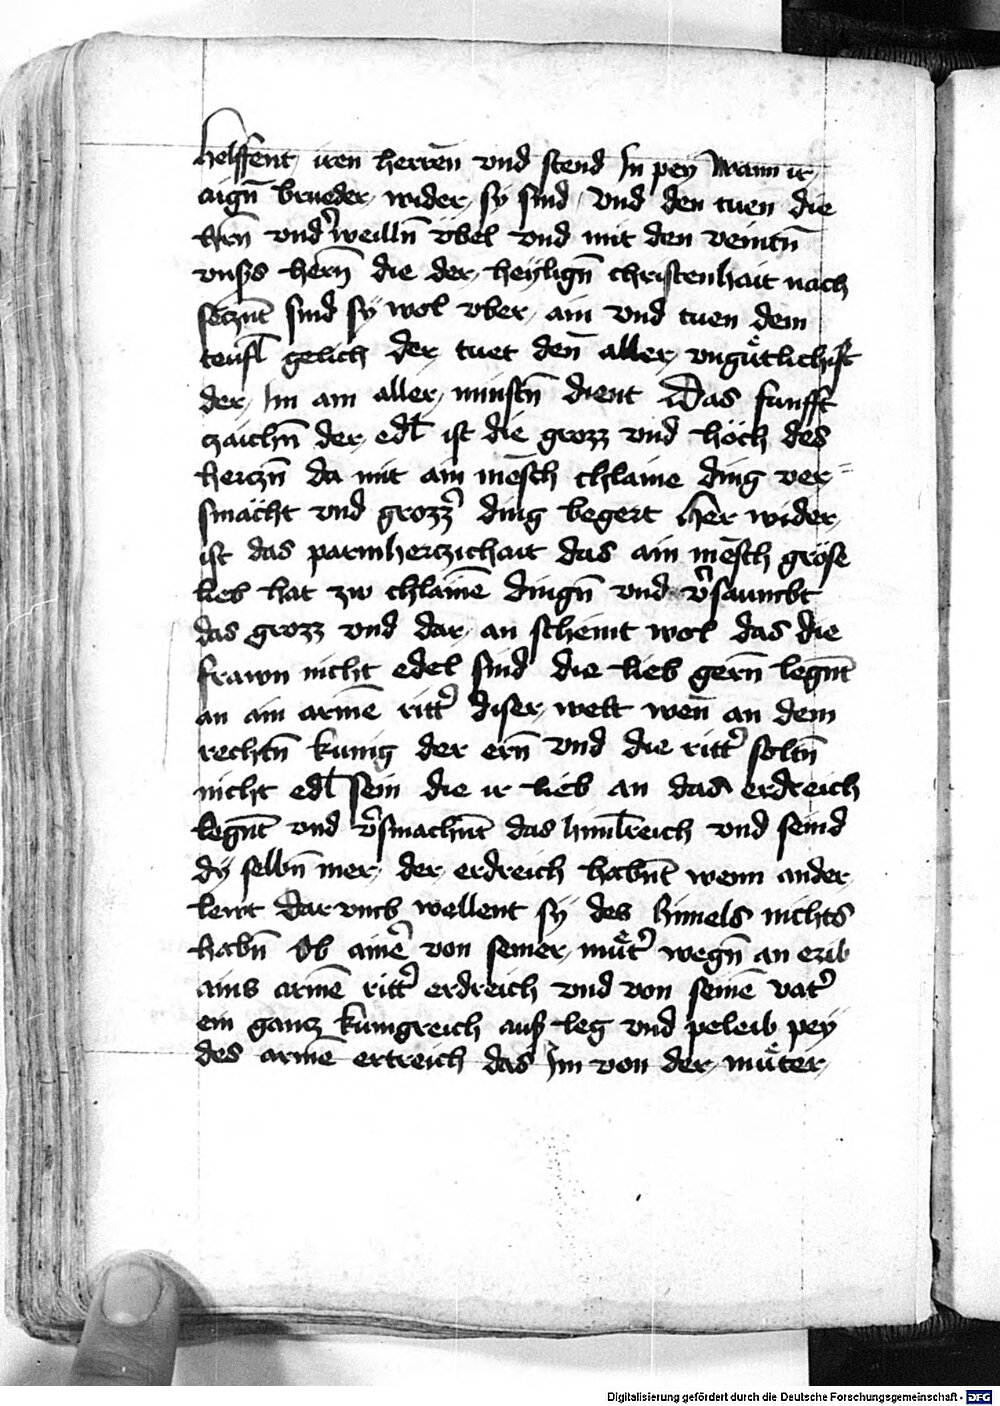 helffent iren herrēn vnd stend In pey Wann ir
aigñ brueder wider sy sind Vnd den tuen die
hrñ vnd weilln̄ vbel vnd mit den veintn̄
vnsers herñ die der heyligñ christenhait nach
seczn̄t sind sy wol vber ain vnd tuen dem
teufl gelich der tuet den̄ aller vngůtlichist
der Im am aller minstn̄ dient Das funfft
zaichn̄ der edl ist die grozz vnd höch des
herczn̄ da mit ain mēsch chlaine ding ver=
smächt vnd grozzˀ ding begert Her wider
ist das parmherczichait das ain mēsch gröse
lieb hat zw chlainē dingñ vnd vˀsaumbt
das grozz vnd dar an scheint wol das die
frawn nicht edel sind die lieb gern̄ legn̄t
an ain armē rittˀ diser welt wen̄ an dem
rechtn̄ kunig der ern̄ vnd die rittˀ soltn̄
nicht edl sein die ir lieb an das erdreich
legn̄t vnd vˀsmachn̄t das himlreich vnd seind
dy selbn̄ mer der erdreich habn̄t wenn ander
lewt Dar vmb wellent sy des himels nichts
habn̄ Ob ainē von seiner můtˀ wegn̄ an
ains armē rittˀ erdreich vnd von seinē vatˀ
ein gancz kunigreich auß leg vnd peleib pey
des armē ertreich das Im von der můter
Digitalisierung gefördert durch die Deutsche Forschungsgemeinschaft - DFG